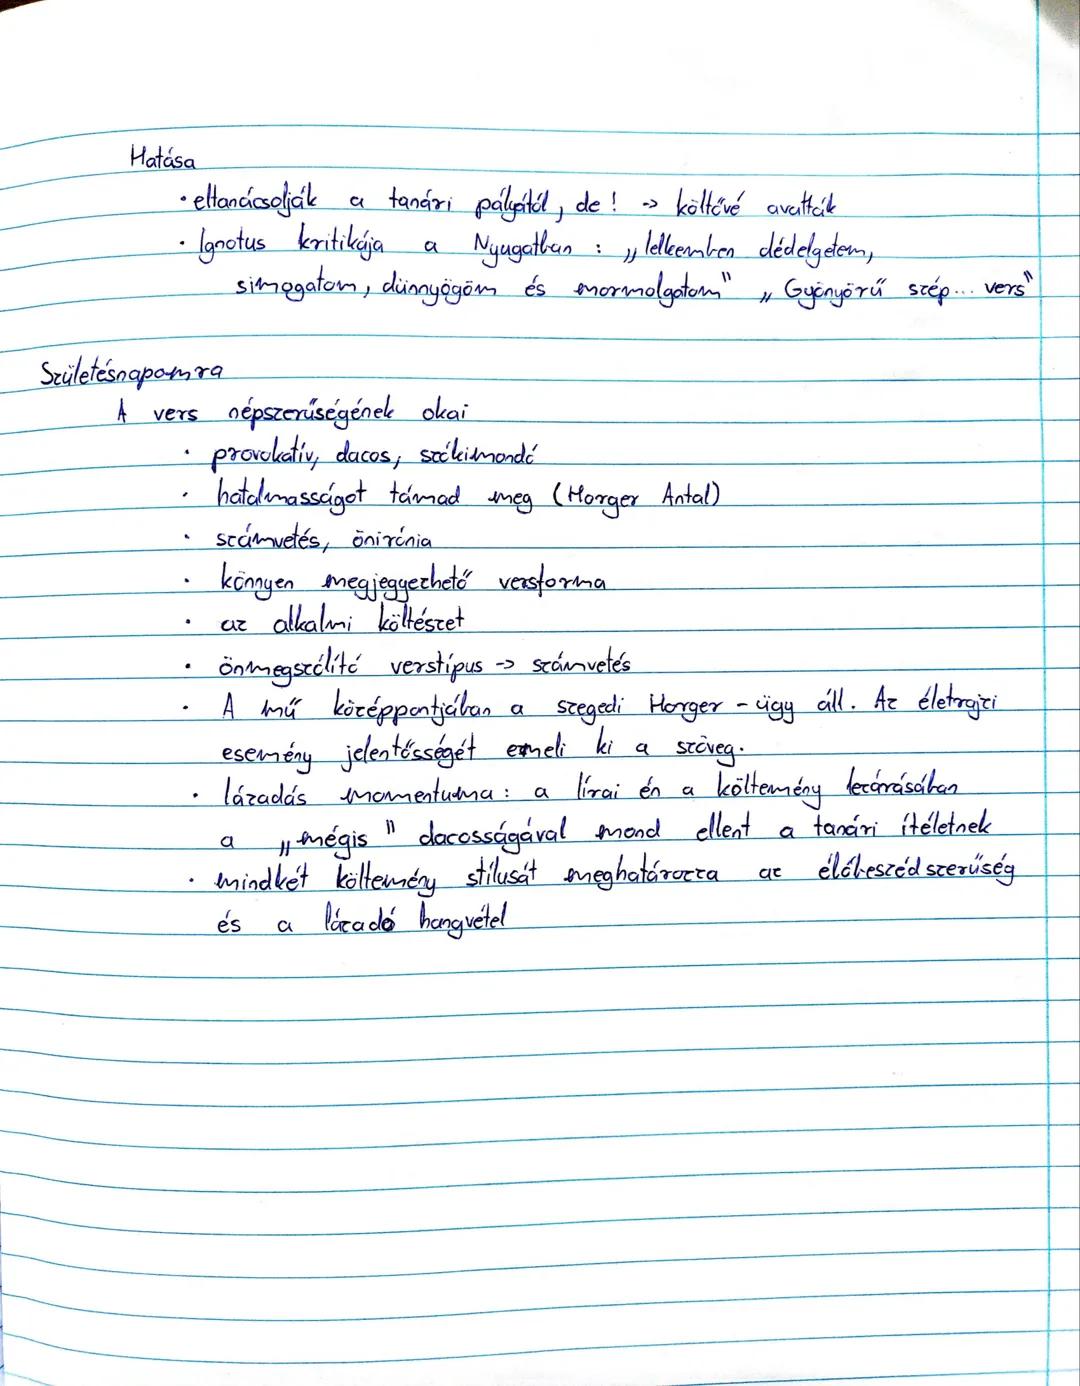 Hatása
· eltanácsolják a tanári pályától, de! -> költővé avatták
· Ignotus kritikája a Nyugatban : „lelkemben dédelgetem,
simogatom, dünnyögöm és mormolgatom" „Gyönyörű szép... vers"
Születésnapomra
A vers népszerűségének okai
· provokatív, dacos, szókimondó
· hatalmasságot támad meg (Horger Antal)
· számvetés, önirónia
· könnyen megjegyezhető versforma
· az alkalmi költészet
· önmegszólító verstípus -> számvetés
· A mű középpontjában a szegedi Horger - ügy áll. Az életrajzi
esemény jelentősségét emeli ki a szöveg.
· lázadás momentuma: a lírai én a költemény lezárásában
a „mégis" dacosságával mond ellent a tanári ítéletnek
· mindkét költemény stílusát meghatározza az élőbeszédszerűség
és a lázadó hangvétel